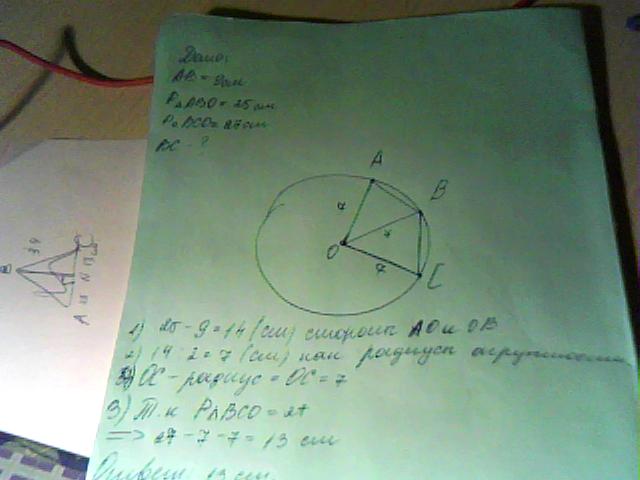 Дано:
AB = 9см
P△ABO = 25 см
P△BCO = 27 см
BC - ?
A
B
7
7
O
7
C
1) 25 - 9 = 14 (см) стороны AO и OB
2) 14 : 2 = 7 (см) как радиусы окружности
OC - радиус = OC = 7
3) Т.к P△BCO = 27
=> 27 - 7 - 7 = 13 см
Ответ: 13 см.